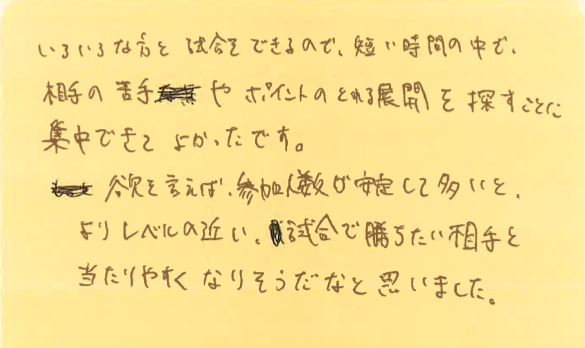 いろいろな方と試合をできるので、短い時間の中で、
相手の苦手やポイントのとれる展開を探すことに
集中できてよかったです。
欲を言えば、参加人数が安定して多いと、
よりレベルの近い、試合で勝ちたい相手と
当たりやすくなりそうだなと思いました。